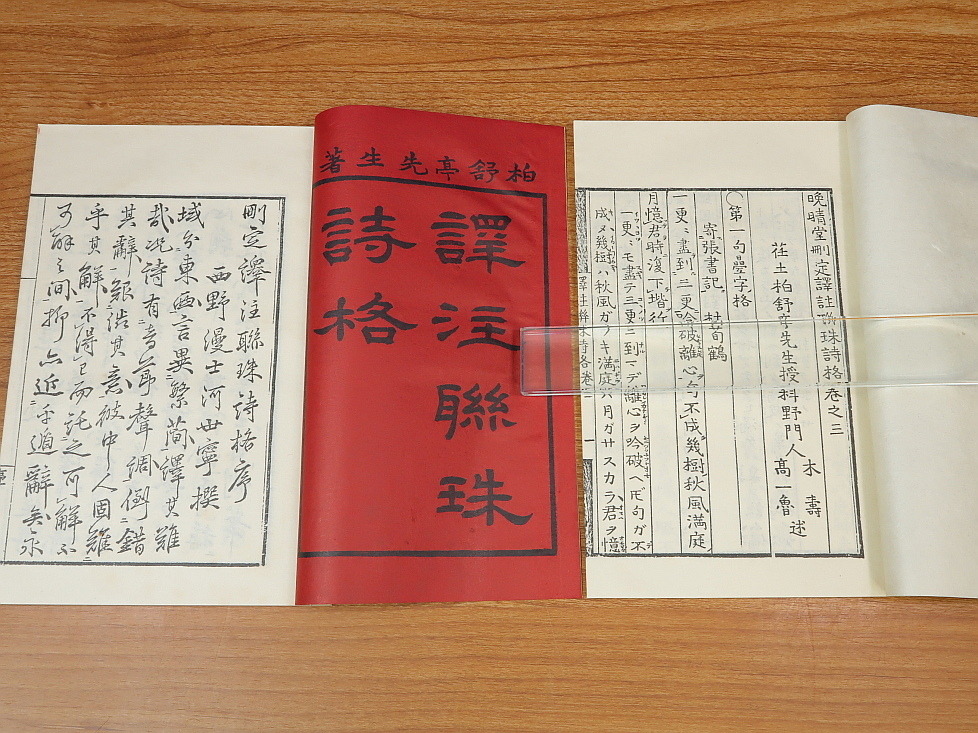 晩晴堂刪定譯註聯珠詩格卷之三
荏土柏舒亭先生授科野門人
木壽
髙一魯
述
〇第一句曡字格
寄張書記 杜荀鶴
一更〻盡到三更吟破離心句不成幾樹秋風滿庭
月憶君時復下堦行
一更〻モ盡テ三更ニ到マデ離心ヲ吟破ヘ𪜈句ガ不
成メ幾樹ハ秋風ガフキ滿庭ハ月ガサスカラ君ヲ憶
柏舒亭先生著
譯注聯珠
詩格
刪定譯注聯珠詩格序
西野漫士河世寧撰
域分東西言異繁簡譯其難
哉况詩有音節聲調倒錯
其辭艱澁其意彼中人固難
乎其解不得已而託之可解不
可解之間抑亦近乎遁辭矣余